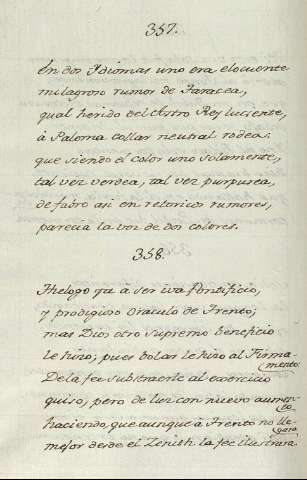 357.
En dos Idiomas uno era eloquente
milagroso rumor de Taracea,
qual herido del Astro Rey luciente,
à Paloma collar neutral rodea:
que siendo el color uno solamente,
tal vez verdea, tal vez purpurea,
de fabro asi en retoricos rumores,
parecia la voz de dos colores.
358.
Thelogo qu à ser iva Pontificio,
y prodigioso Oraculo de Trento;
mas Dios otro supremo beneficio
le hizo; pues bolar le hizo al Firmamento:
De la fee substraerle al exercicio
quiso, pero de luz con nuevo aumento,
haciendo que aunque à Trento no llegara
mejor desde el Zenith la fee ilustrara.